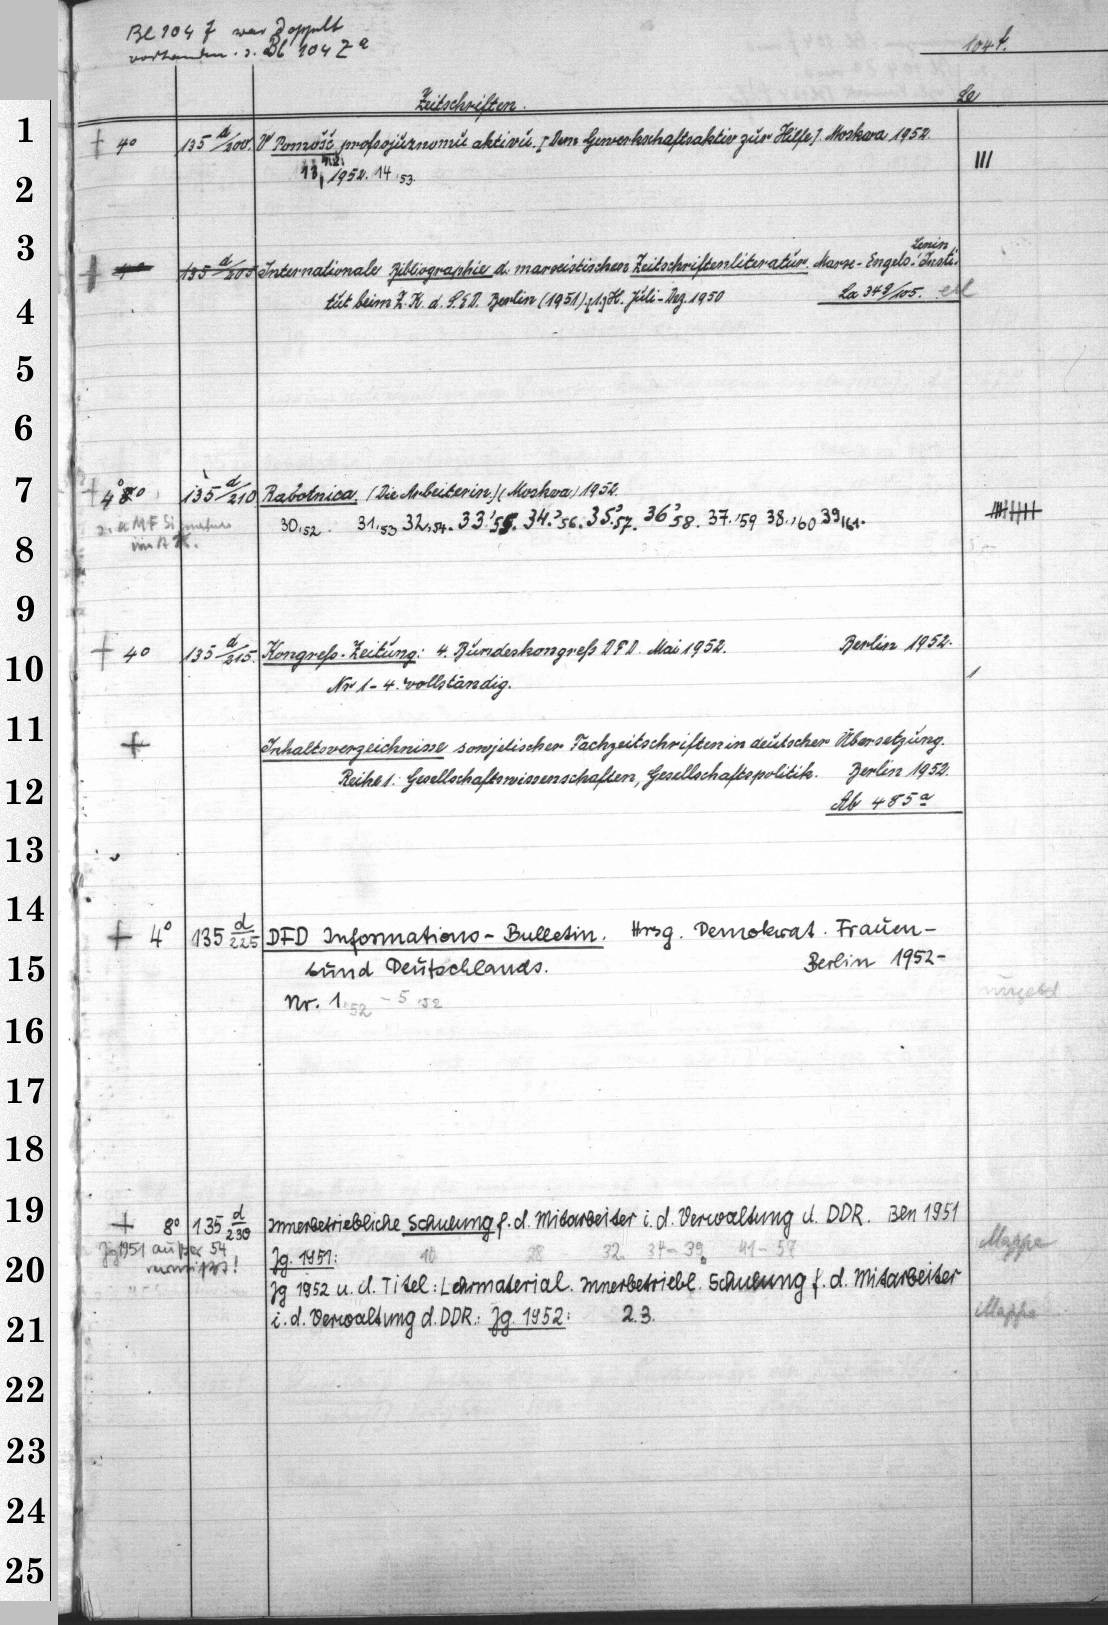 Bl 104 f war doppelt
vorhanden. s. Bl 104 Z a
104 f.
Zeitschriften.
La
1
+ 4° 135 d/200. V Pomošč profsojuznomu aktivu. [Dem Gewerkschaftsaktiv zur Hilfe] Moskva 1952
13, 1952. 14,53.
III
2
3
Lenin
+ 135 d/205 Internationale Bibliographie d. marxistischen Zeitschriftenliteratur. Marx-Engels-Insti-
4
tut beim Z.K. d. S.E.D. Berlin (1951). [1.] H. Juli-Dez. 1950 La 349/105.
5
6
7
+ 4° 135 d/210 Rabotnica. (Die Arbeiterin.) (Moskva) 1952.
30,52. 31,53 32,54. 33,55. 34,56. 35,57. 36,58. 37,59 38,60 39,61.
s. a MF Signatur
im
8
9
10
+ 4° 135 d/215. Kongreß-Zeitung: 4. Bundeskongreß DFD. Mai 1952. Berlin 1952.
Nr 1-4. vollständig.
11
+ Inhaltsverzeichnisse sowjetischer Fachzeitschriften in deutscher Übersetzung.
12
Reihe 1. Gesellschaftswissenschaften, Gesellschaftspolitik. Berlin 1952.
Ab 485 a
13
14
+ 4° 135 d/225 DFD Informations-Bulletin. Hrsg. Demokrat. Frauen-
15
bund Deutschlands. Berlin 1952-
Nr. 1,52 - 5,52
16
17
18
19
+ 8° 135 d/230 Innerbetriebliche Schulung f. d. Mitarbeiter i. d. Verwaltung d. DDR. Bln 1951
Jg 1951 außer 54
vermißt!
20
Jg. 1951: 10 28 32. 37-39. 41-54
Mappe
Jg 1952 u. d. Titel: Lehrmaterial. Innerbetriebl. Schulung f. d. Mitarbeiter
21
i. d. Verwaltung d. DDR.: Jg. 1952: 2.3.
Mappe
22
23
24
25